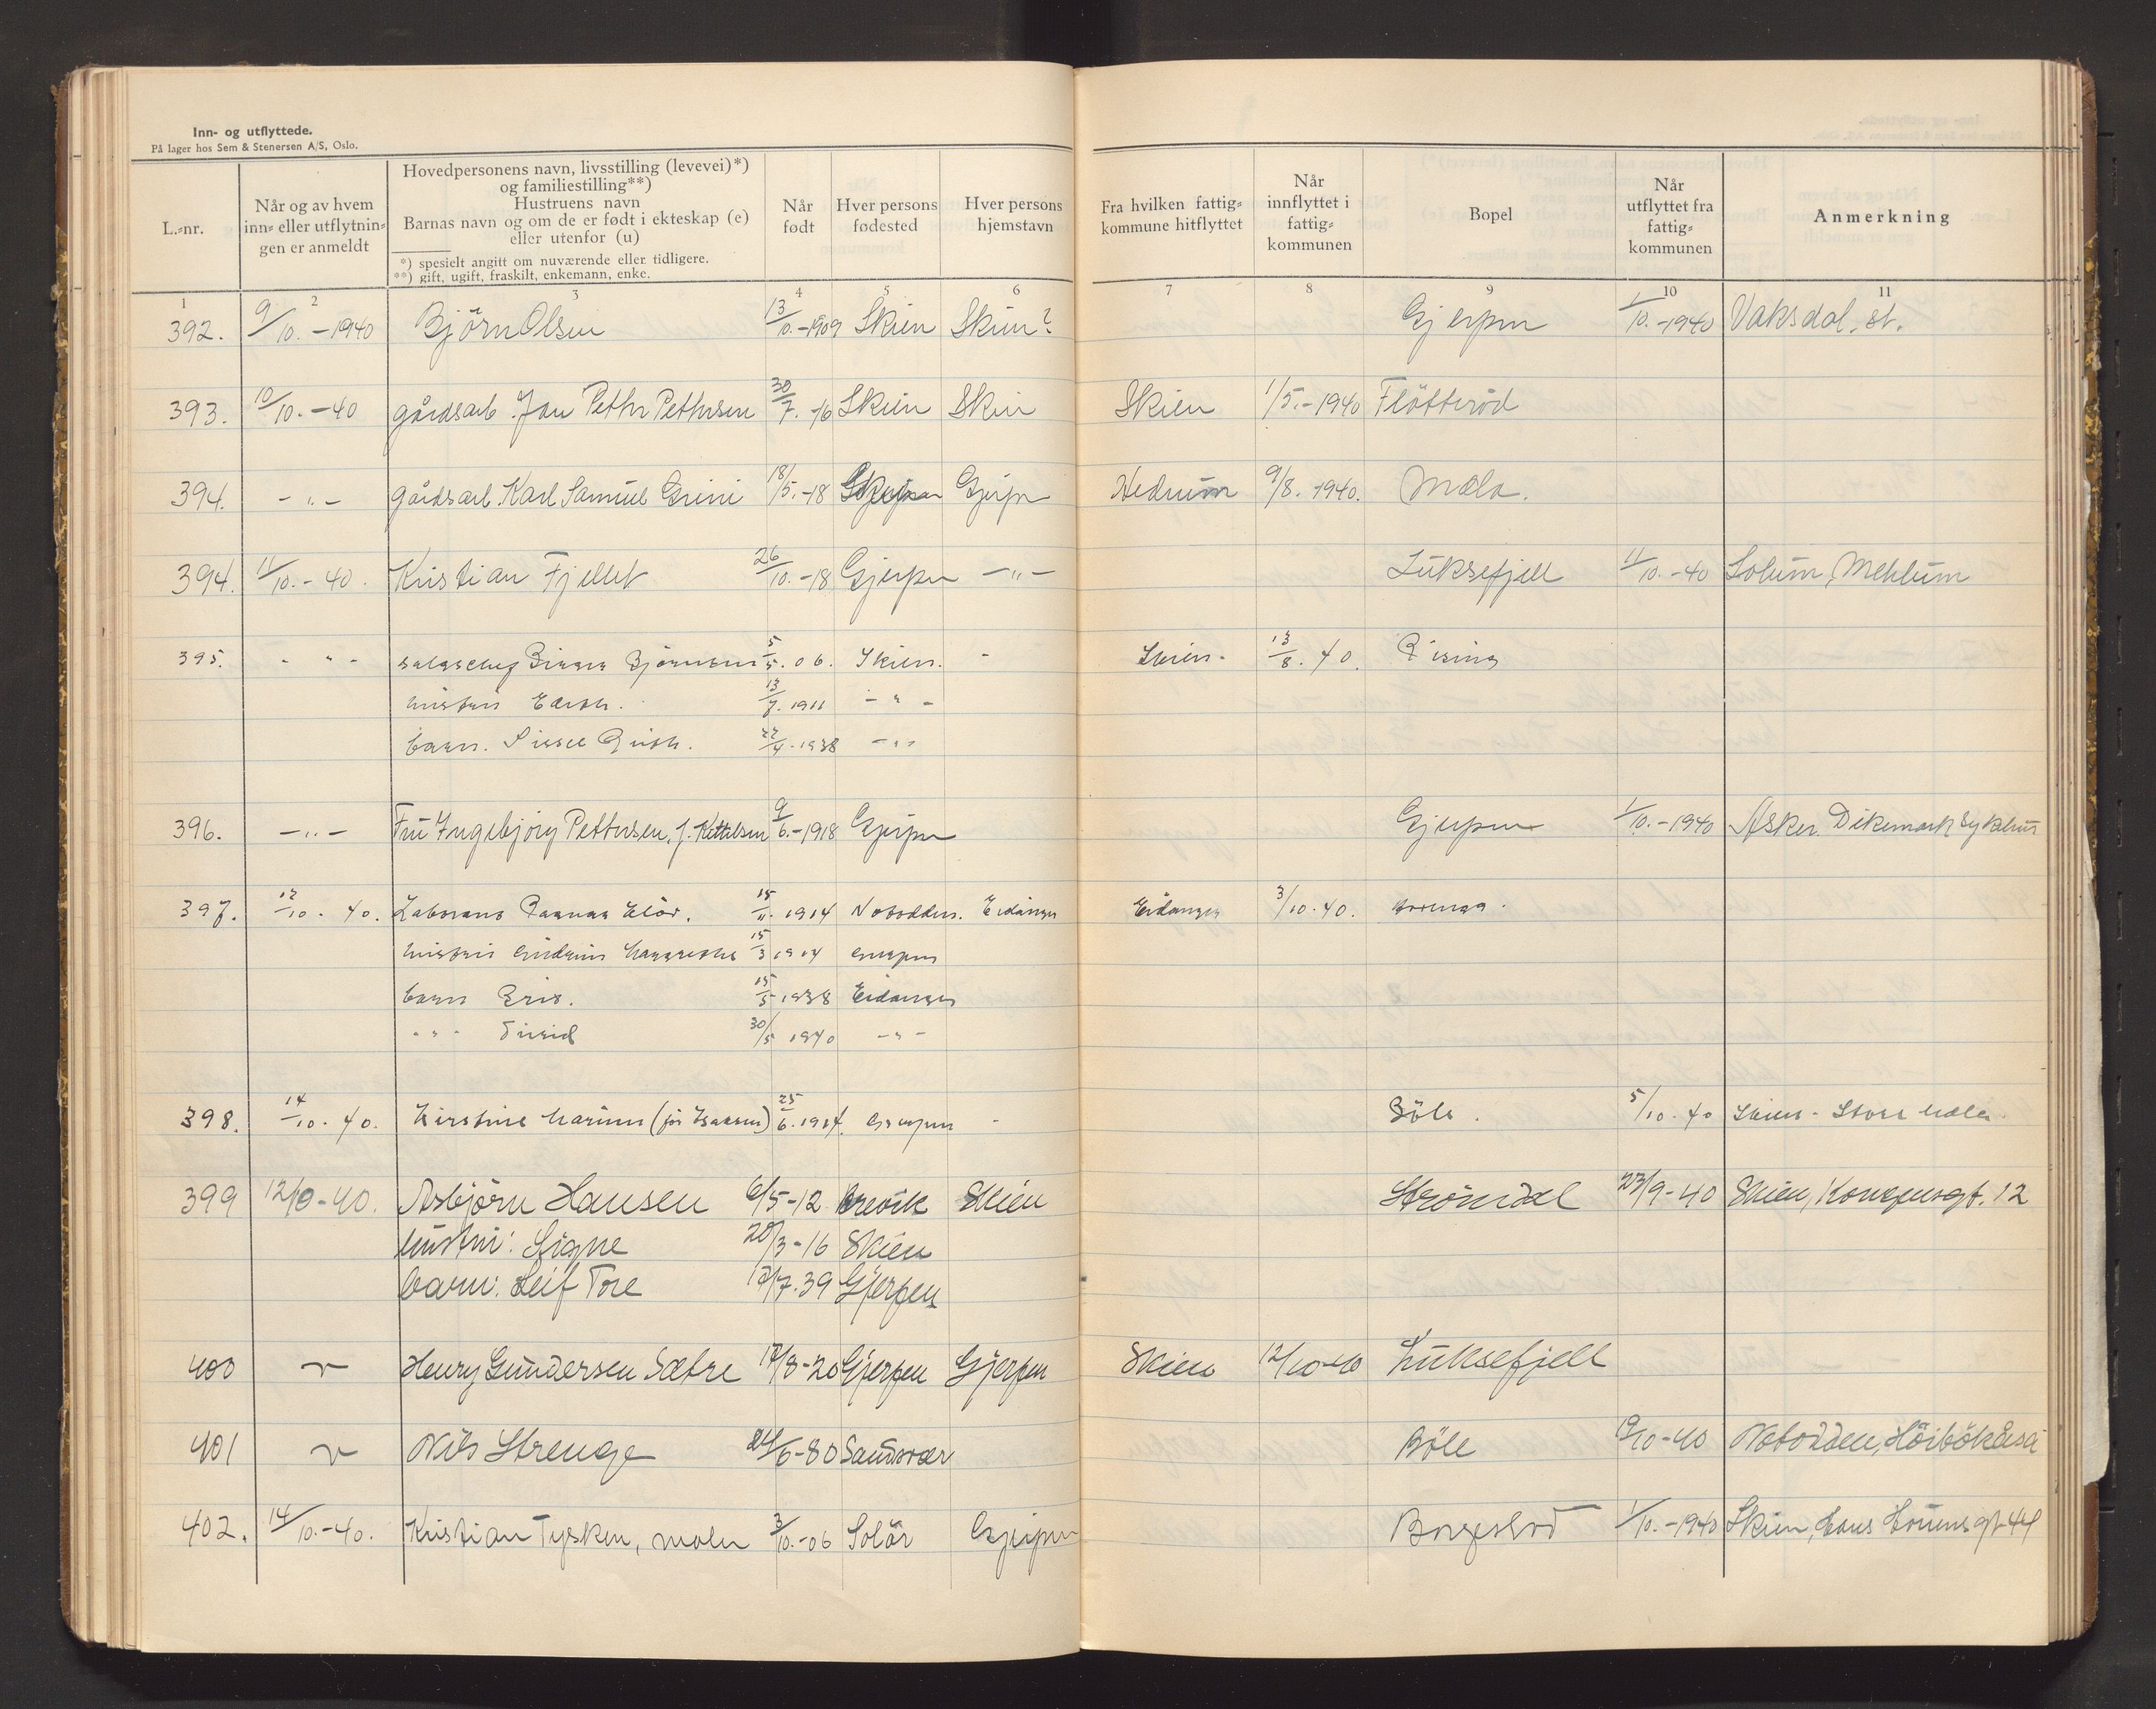 Inn- og utflyttede.
På lager hos Sem & Stenersen A/S, Oslo.
L.-nr.
Når og av hvem inn- eller utflytningen er anmeldt
Hovedpersonens navn, livsstilling (levevei)*)
og familiestilling**)
Hustruens navn
Barnas navn og om de er født i ekteskap (e)
eller utenfor (u)
*) spesielt angitt om nuværende eller tidligere.
**) gift, ugift, fraskilt, enkemann, enke.
Når født
Hver persons fødested
Hver persons hjemstavn
Fra hvilken fattigkommune hitflyttet
Når innflyttet i fattigkommunen
Bopel
Når utflyttet fra fattigkommunen
Anmerkning
1 2 3 4 5 6 7 8 9 10 11
392. 9/10.-1940 Björn Olsen 13/10.-1909 Skien Skien? Gjerpen 1/10.-1940 Vaksdal. st.
393. 10/10.-40 gårdsarb. Jan Petter Pettersen 30/7.-16 Skien Skien Skien 1/5.-1940 Flötteröd
394. -"- gårdsarb. Karl Samuel Grini 18/5.-18 Gjerpen Hedrum 9/8.-1940. Mæla.
394. 11/10.-40. Kristian Fjellet 26/10.-18 Gjerpen -"- Luksefjell 11/10.-40 Solum, Mehlum
395. " " - Björnsen 5/5.06. Skien. - Skien. 13/8.40. Rising
hustru Edith. 13/7.1911 -"-
barn. Sissel Ruth. 22/4.1938 -"-
396. -"- Fru Ingebjörg Pettersen, f. Kittilsen 9/6.-1918 Gjerpen Gjerpen 1/10.-1940 Asker. Dikemark sykehus
397. 12/10.40. Ragnar 15/11.1914 Notodden. Eidanger Eidanger 3/10.40. Borgeå.
hustru Gudrun Margrethe 15/3 1914 Gjerpen
barn 15/5-1938 Eidanger
" " - Turid 30/5 1940 -"-
398. 14/10.40. Kirstine 25/6. Gjerpen - Böle. 5/10.40 Skien - Store Mæla.
399 12/10-40. Asbjörn Hansen 6/5-12 Brevik Skien Ströndal 23/9-40 Skien, Kongensgt. 12
hustru: Signe 20/3-16 Skien
barn: Leif Tore 12/7.39 Gjerpen
400 " Henry Gundersen Sætre 17/8-20 Gjerpen Gjerpen Skien 12/10-40 Luksefjell
401 " Nils Strenge 24/6-80 Sandsvær Böle 12/10-40 Notodden, Höibökåsa
402. 14/10.-40. Kristian Tysken, maler 3/10.-06 Solör Gjerpen Borgestad 1/10.-1940 Skien, Hans Houensgt 44